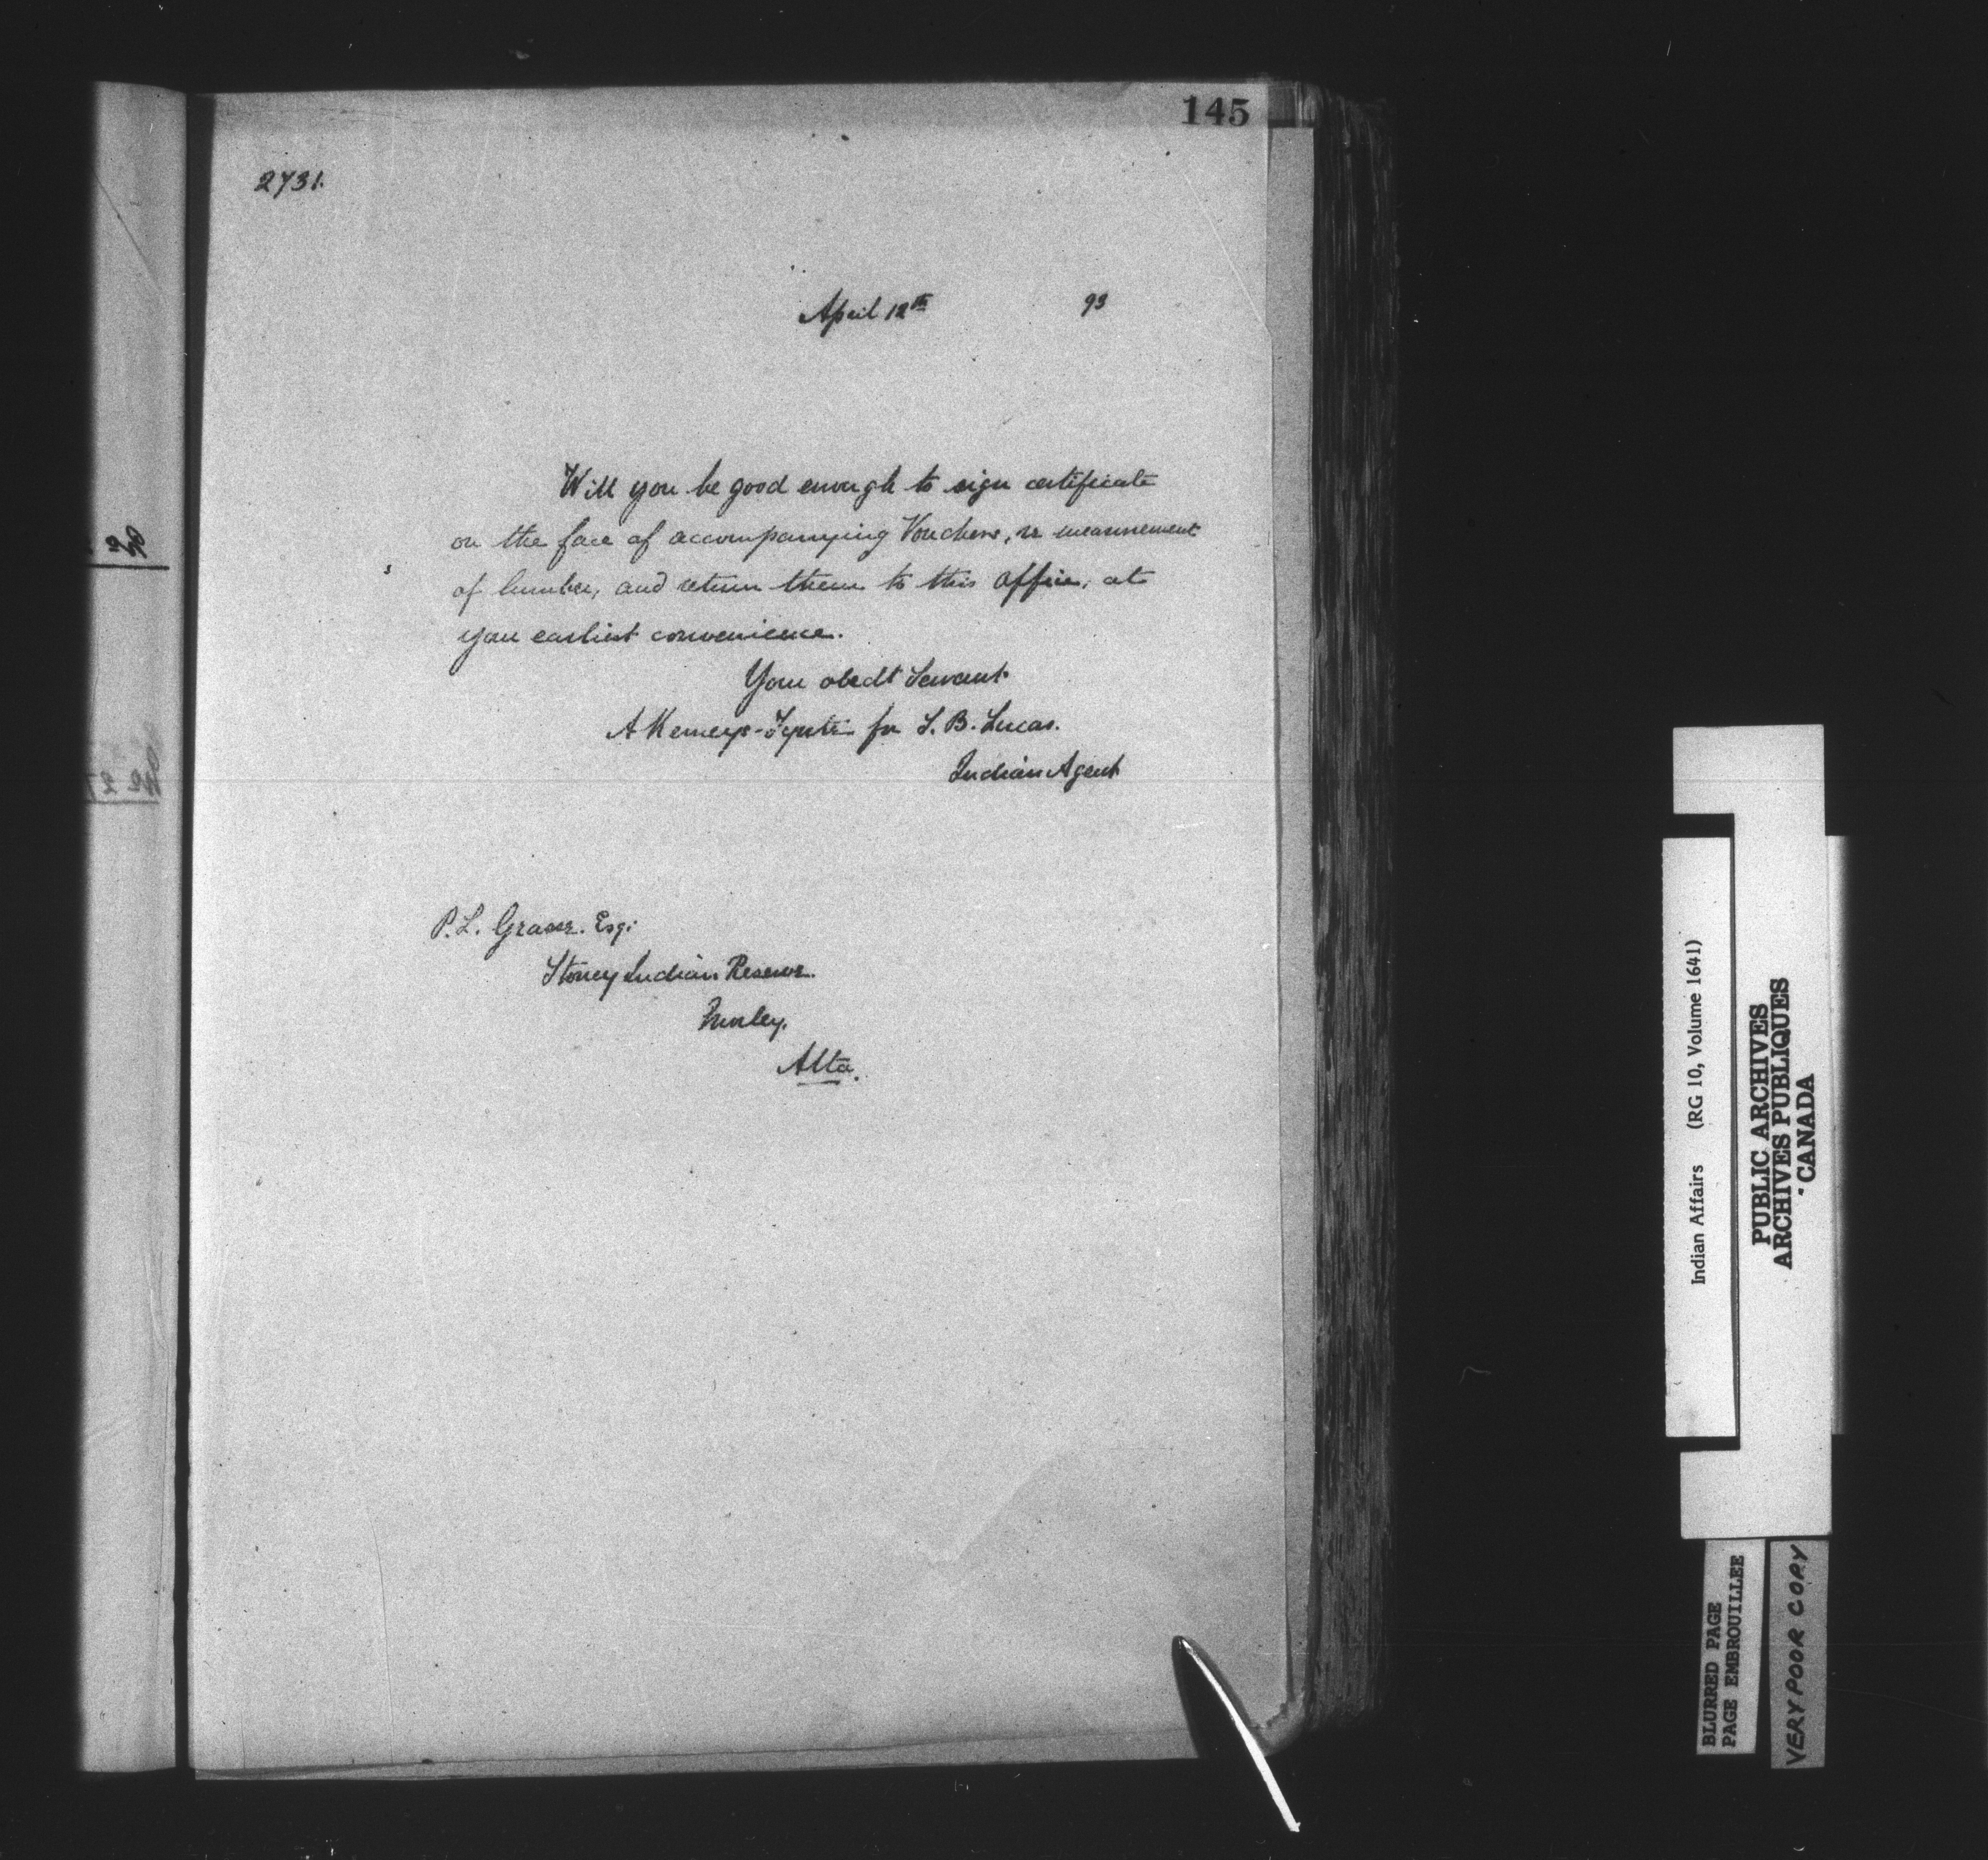 145
2731.
April 12th 93
Will you be good enough to sign certificate
on the face of accompanying Vouchers, re measurement
of lumber, and return them to this office, at
your earliest convenience.
Your obedt Servant
A Kemeys-Tynte for S. B. Lucas.
Indian Agent
P. L. Grasse. Esq:
Stoney Indian Reserve.
Morley.
Alta.
Indian Affairs (RG 10, Volume 1641)
PUBLIC ARCHIVES
ARCHIVES PUBLIQUES
CANADA
BLURRED PAGE
PAGE EMBROUILLEE
VERY POOR COPY